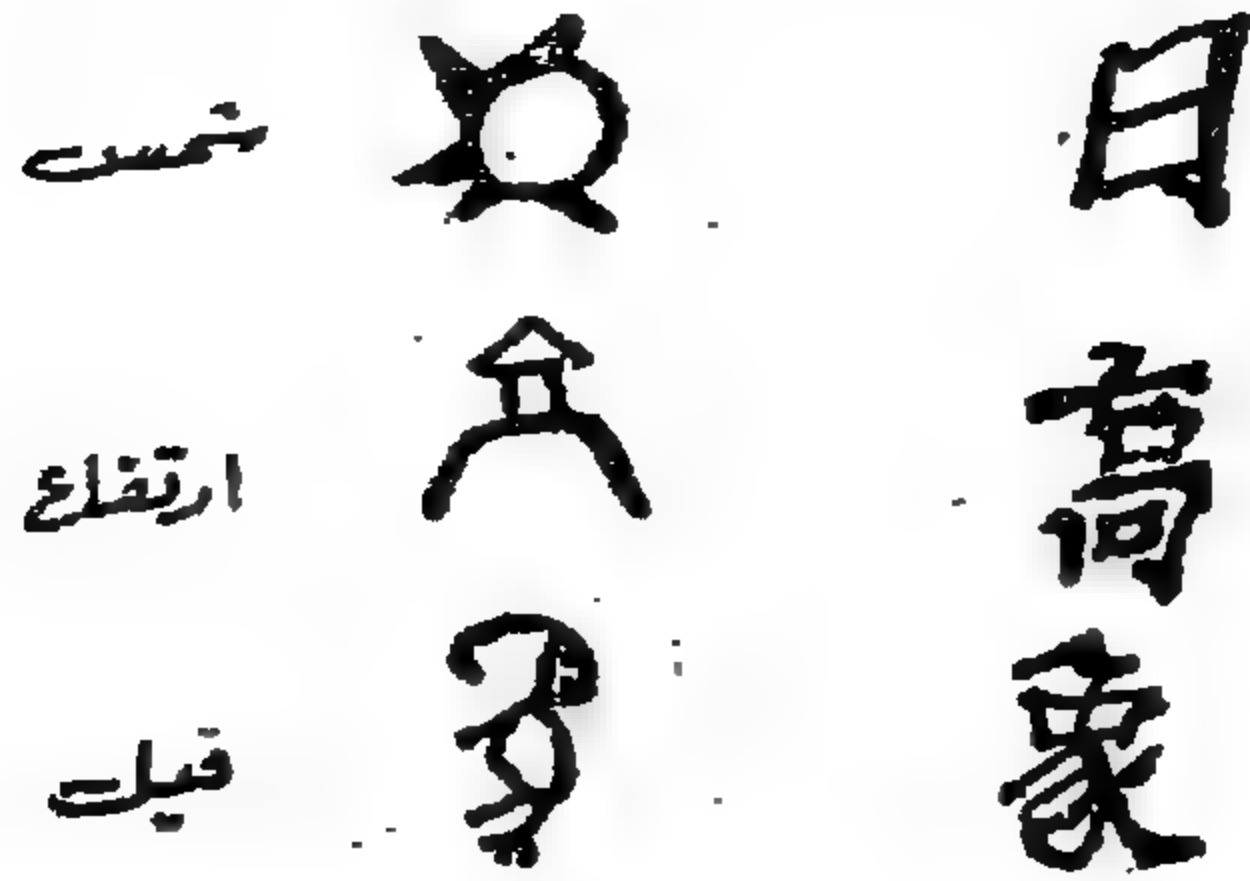 شمس 日
ارتفاع 高
فيل 象